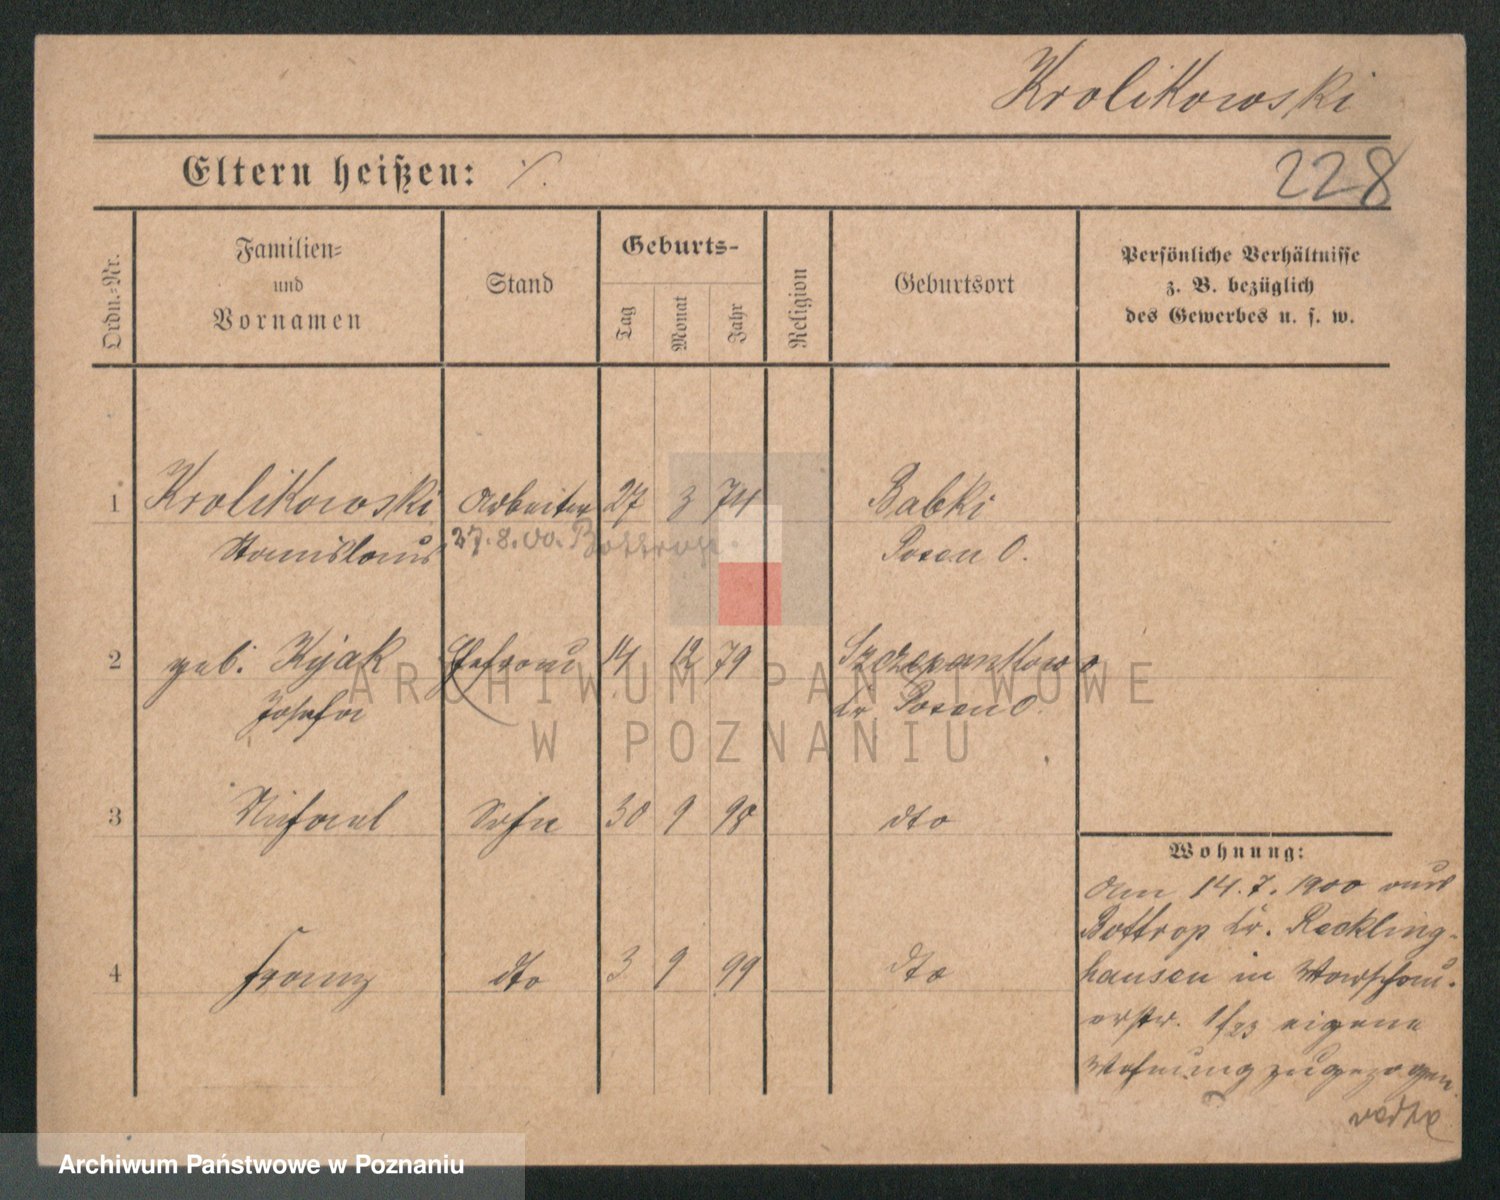 Krolikowski
Eltern heißen: ·/.
228
Ordn.=Nr.
Familien=
und
Vornamen
Stand
Geburts-
Tag
Monat
Jahr
Religion
Geburtsort
Persönliche Verhältnisse
z. B. bezüglich
des Gewerbes u. s. w.
1 Krolikowski Arbeiter 27 3 74 Babki
Stanislaus 27.8.00. Bottrop. Posen O.
2 geb. Kijak Ehefrau 14 12 79 Szczepankowo
Josefa Kr Posen O
3 Michael Sohn 30 9 98 dto
4 Franz dto 3 9 99 dto
Wohnung:
Am 14.7.1900 aus
Bottrop Kr. Reckling-
hausen in Warschau-
erstr. 1/23 eigene
Wohnung zugezogen
ARCHIWUM PAŃSTWOWE
W POZNANIU
Archiwum Państwowe w Poznaniu